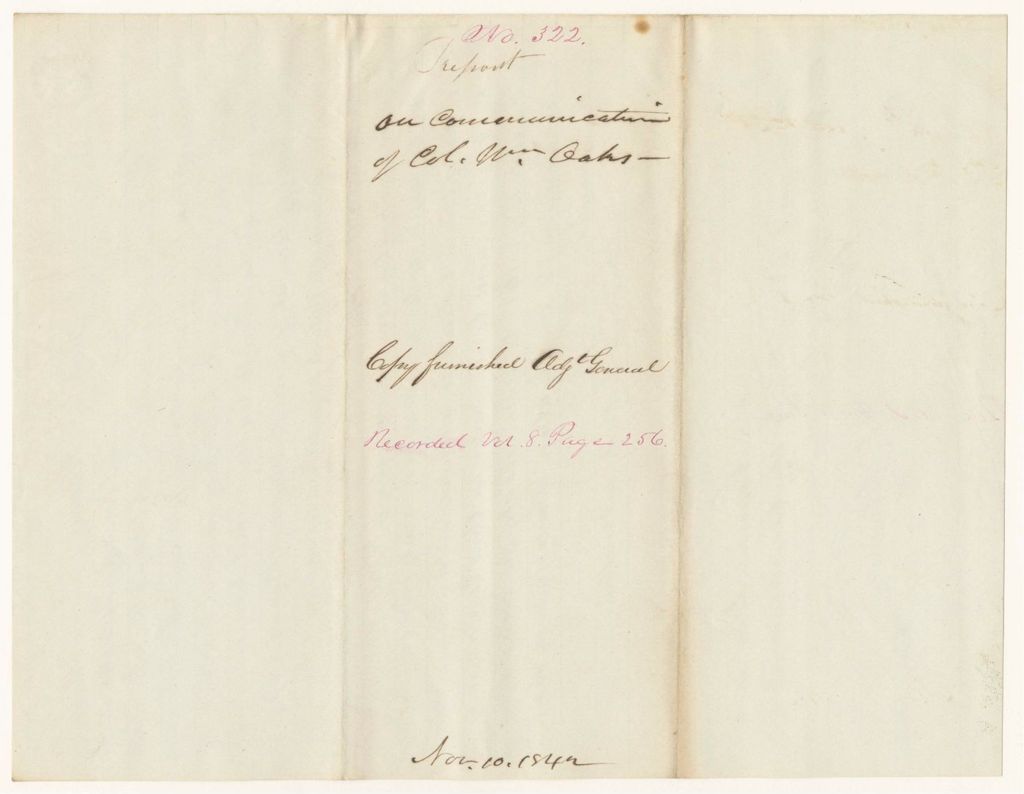 No. 322.
Report
on Communication
of Col. Wm Oaks —
Copy furnished Adjt General
Recorded Vol. 8. Page 256.
Nov. 10. 1842